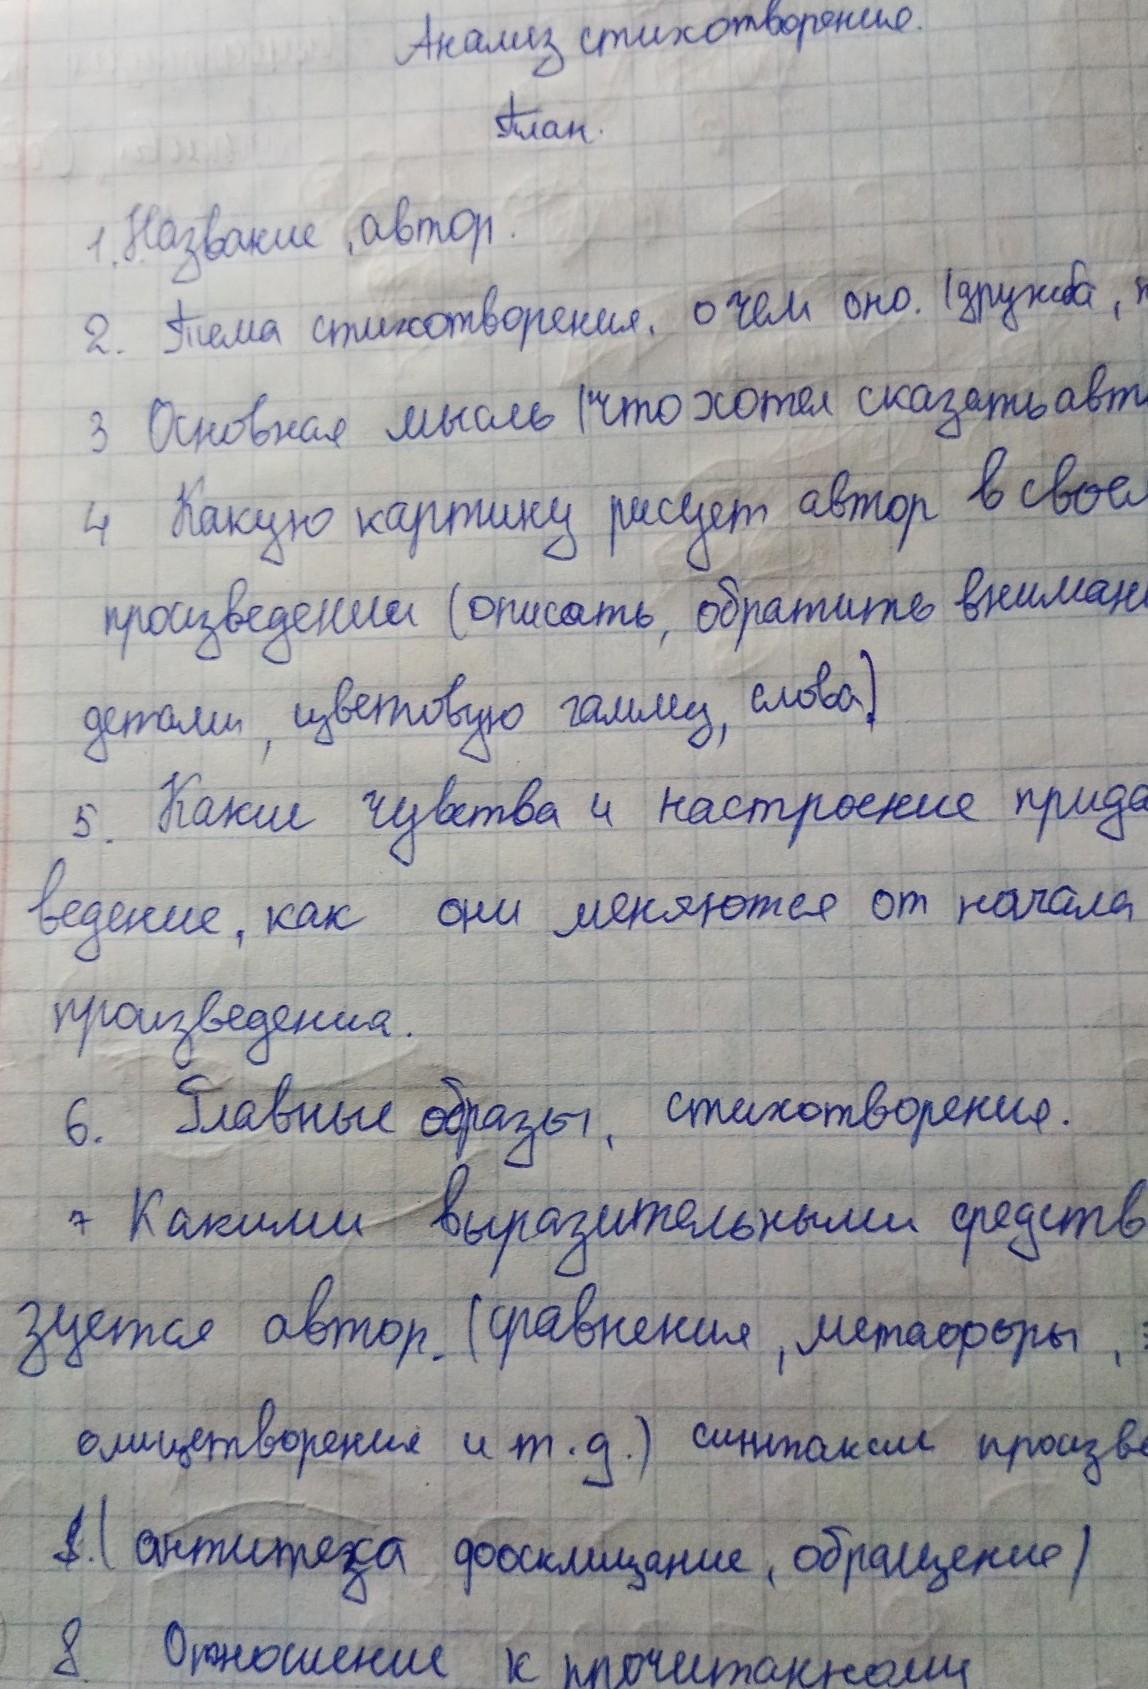 Анализ стихотворения.
План.
1. Название, автор.
2. Тема стихотворения. о чем оно. (дружба,
3 Основная мысль (что хотел сказать авт
4 Какую картину рисует автор в свое
произведении (описать, обратить вниман
детали, цветовую гамму, слова)
5. Какие чувства и настроение прида
ведение, как они меняются от начала
произведения.
6. Главные образы, стихотворения.
7 Какими выразительными средств
зуется автор. (сравнения, метафоры,
олицетворения и т.д.) синтаксис произве
(антитеза восклицание, обращение)
8 Отношение к прочитанному